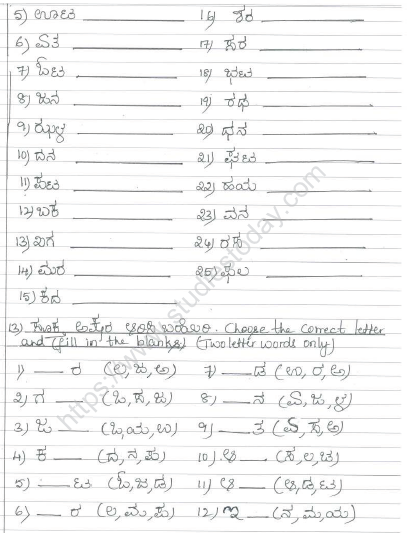 5) ಊಟ ____________ 16) ಶರ ____________
6) ಏತ ____________ 17) ಸರ ____________
7) ಓಟ ____________ 18) ಭಟ ____________
8) ಜನ ____________ 19) ರಥ ____________
9) ಝಳ ____________ 20) ಧನ ____________
10) ದನ ____________ 21) ಘಟ ____________
11) ಪಟ ____________ 22) ಹಯ ____________
12) ಬಕ ____________ 23) ವನ ____________
13) ಖಗ ____________ 24) ರಸ ____________
14) ಮರ ____________ 25) ಫಲ ____________
15) ಕದ ____________
(3) ಸೂಕ್ತ ಅಕ್ಷರ ಆರಿಸಿ ಬರೆಯಿರಿ. Choose the correct letter
and (fill in the blanks) (Two letter words only)
1) ___ ರ (ಲ, ಜ, ಅ) 7) ___ ಡ (ಊ, ರ, ಅ)
2) ಗ ___ (ಒ, ಸ, ಜ) 8) ___ ನ (ಏ, ಜ, ಳ)
3) ಜ ___ (ಒ, ಯ, ಉ) 9) ___ ತ (ಏ, ಸ, ಅ)
4) ಕ ___ (ದ, ನ, ಷ) 10) ಆ ___ (ಸ, ಲ, ಚ)
5) ___ ಟ (ಓ, ಜ, ಡ) 11) ಆ ___ (ಆ, ಡ, ಟ)
6) ___ ರ (ಲ, ಮ, ಷ) 12) ಇ ___ (ನ, ಮ, ಯ)
https://www.studiestoday.com